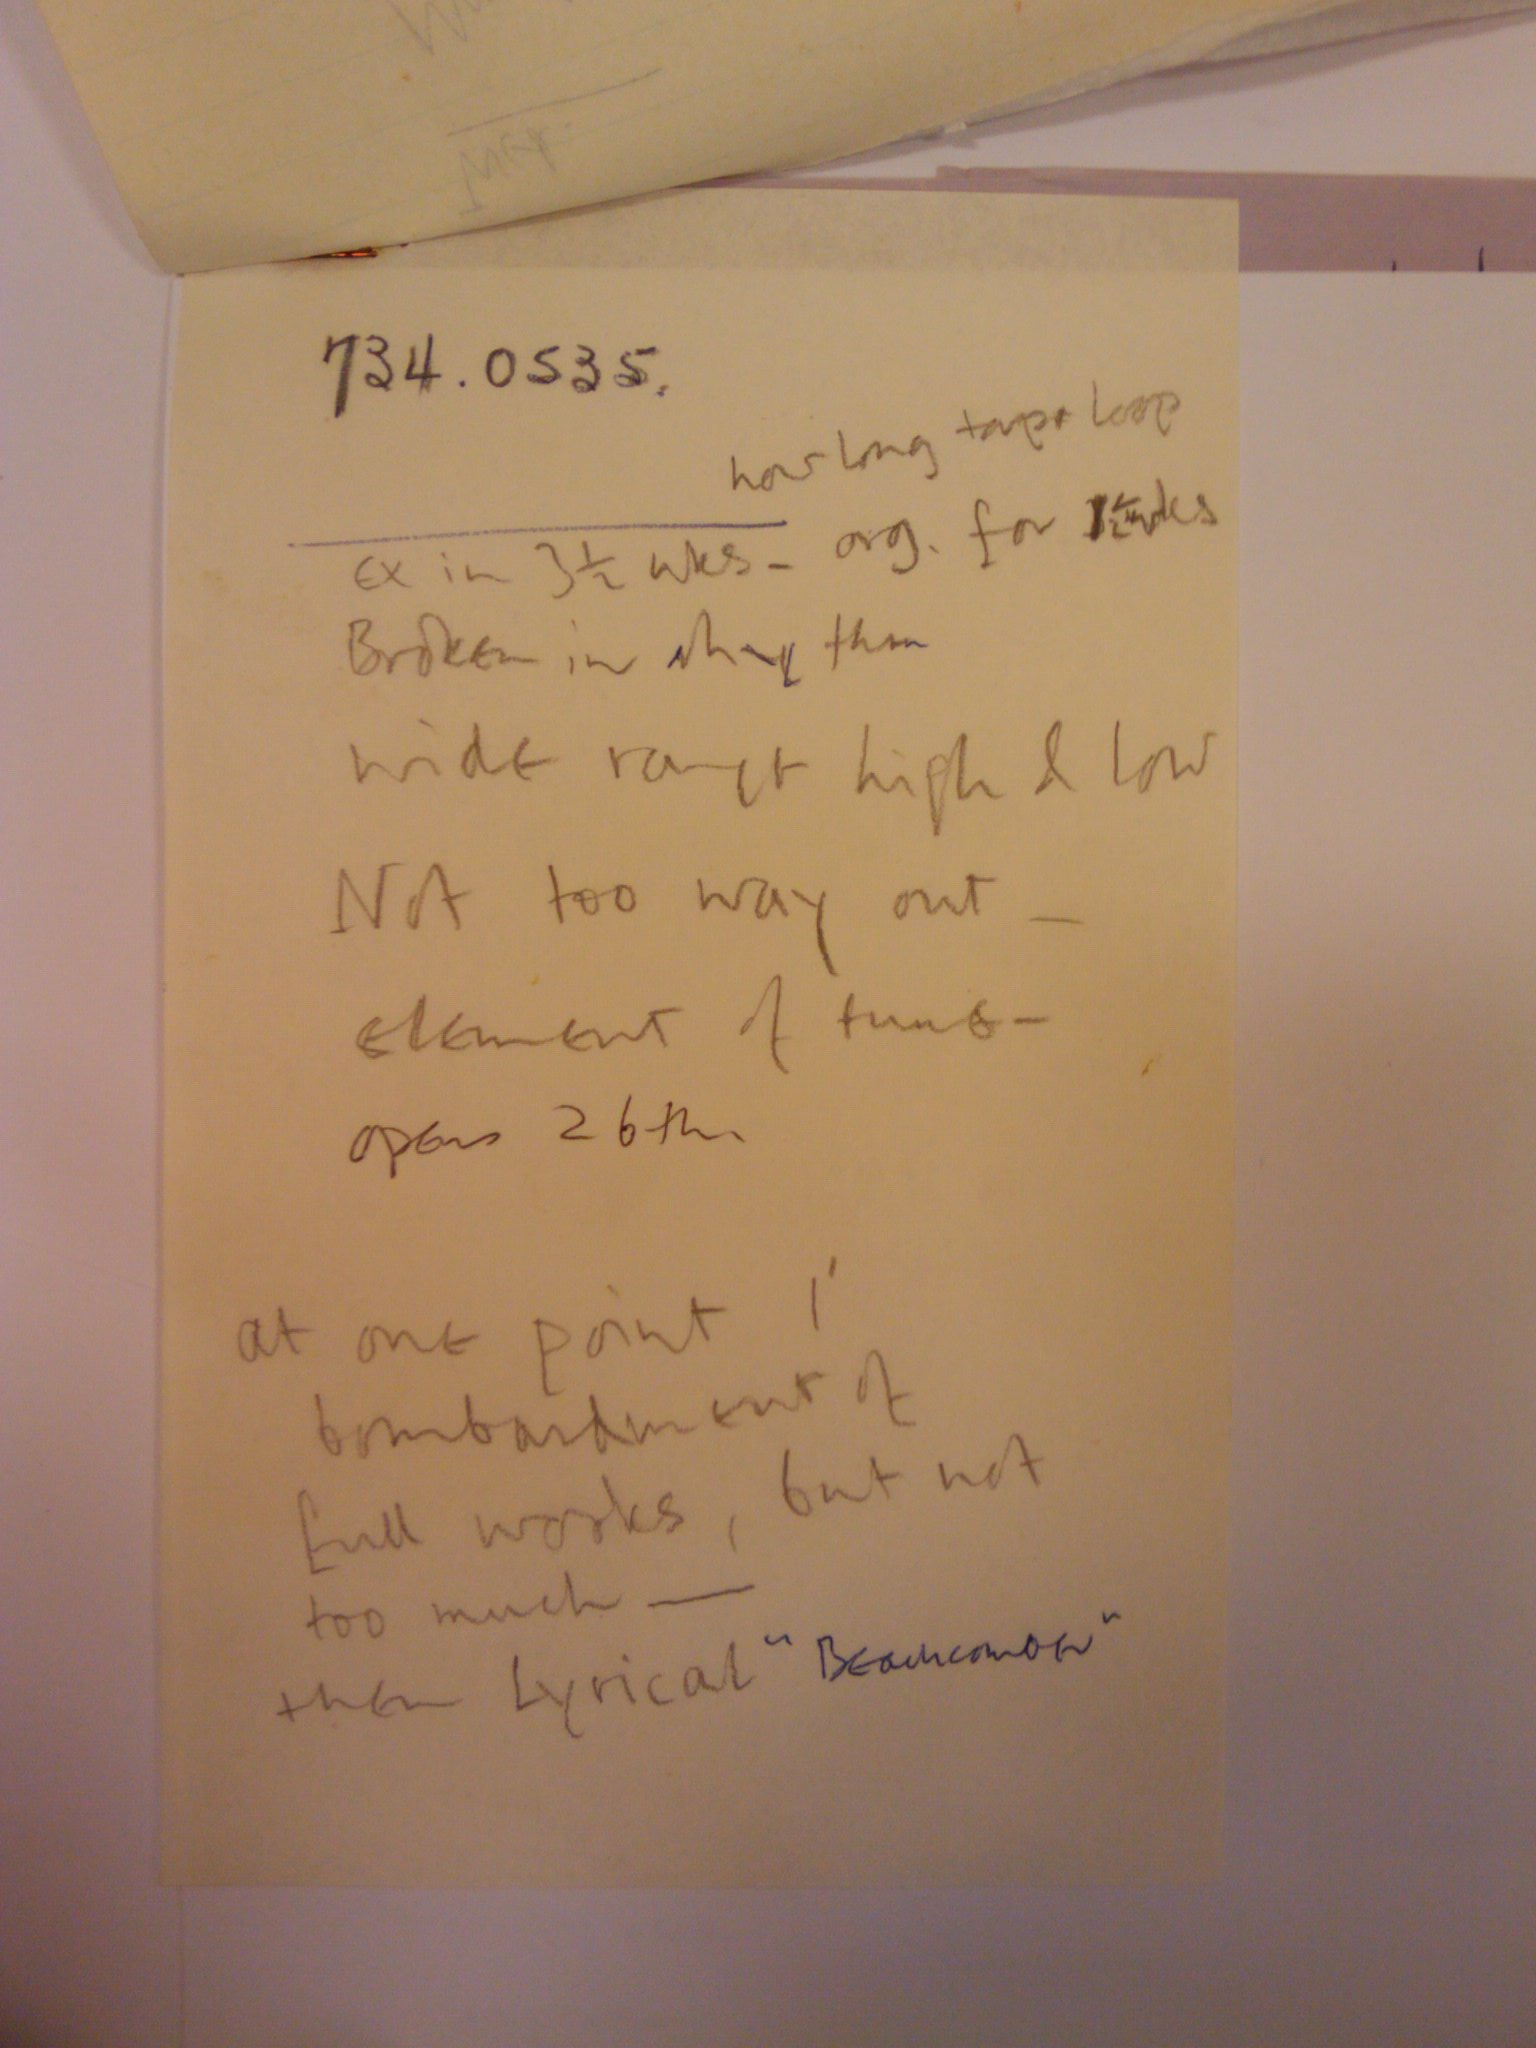 734.0535.
how long tape loop
Ex in 3½ wks - org. for wks
Broken in rhythm
wide range high & low
Not too way out —
element of tune -
opens 26th.
at one point 1'
bombardment of
full works, but not
too much —
then Lyrical "Beachcomber"